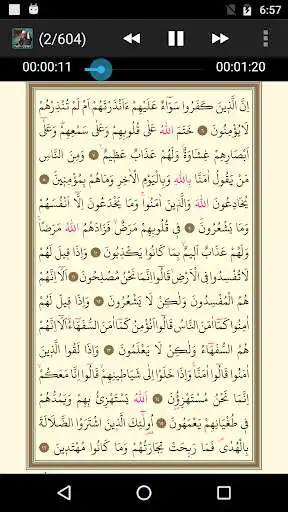 6:57
(2/604)
00:00:11 00:01:20
اِنَّ الَّذٖينَ كَفَرُوا سَوَٓاءٌ عَلَيْهِمْ ءَاَنْذَرْتَهُمْ اَمْ لَمْ تُنْذِرْهُمْ
لَا يُؤْمِنُونَ ﴿٦﴾ خَتَمَ اللّٰهُ عَلٰى قُلُوبِهِمْ وَعَلٰى سَمْعِهِمْ وَعَلٰٓى
اَبْصَارِهِمْ غِشَاوَةٌ وَلَهُمْ عَذَابٌ عَظٖيمٌ ﴿٧﴾ وَمِنَ النَّاسِ
مَنْ يَقُولُ اٰمَنَّا بِاللّٰهِ وَبِالْيَوْمِ الْاٰخِرِ وَمَاهُمْ بِمُؤْمِنٖينَ ﴿٨﴾
يُخَادِعُونَ اللّٰهَ وَالَّذٖينَ اٰمَنُوا وَمَا يَخْدَعُونَ اِلَّٓا اَنْفُسَهُمْ
وَمَا يَشْعُرُونَ ﴿٩﴾ فٖى قُلُوبِهِمْ مَرَضٌ فَزَادَهُمُ اللّٰهُ مَرَضًا
وَلَهُمْ عَذَابٌ اَلٖيمٌ بِمَا كَانُوا يَكْذِبُونَ ﴿١٠﴾ وَاِذَا قٖيلَ لَهُمْ
لَا تُفْسِدُوا فِى الْاَرْضِ قَالُٓوا اِنَّمَا نَحْنُ مُصْلِحُونَ ﴿١١﴾ اَلَٓا اِنَّهُمْ
هُمُ الْمُفْسِدُونَ وَلٰكِنْ لَا يَشْعُرُونَ ﴿١٢﴾ وَاِذَا قٖيلَ لَهُمْ
اٰمِنُوا كَمَٓا اٰمَنَ النَّاسُ قَالُٓوا اَنُؤْمِنُ كَمَٓا اٰمَنَ السُّفَهَٓاءُ اَلَٓا اِنَّهُمْ
هُمُ السُّفَهَٓاءُ وَلٰكِنْ لَا يَعْلَمُونَ ﴿١٣﴾ وَاِذَا لَقُوا الَّذٖينَ
اٰمَنُوا قَالُٓوا اٰمَنَّا وَاِذَا خَلَوْا اِلٰى شَيَاطٖينِهِمْ قَالُٓوا اِنَّا مَعَكُمْ
اِنَّمَا نَحْنُ مُسْتَهْزِؤُنَ ﴿١٤﴾ اَللّٰهُ يَسْتَهْزِئُ بِهِمْ وَيَمُدُّهُمْ
فٖى طُغْيَانِهِمْ يَعْمَهُونَ ﴿١٥﴾ اُولٰٓئِكَ الَّذٖينَ اشْتَرَوُا الضَّلَالَةَ
بِالْهُدٰى فَمَا رَبِحَتْ تِجَارَتُهُمْ وَمَا كَانُوا مُهْتَدٖينَ ﴿١٦﴾